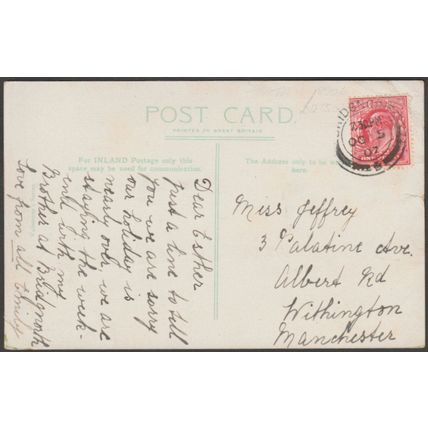 POST CARD.
PRINTED IN GREAT BRITAIN
For INLAND Postage only this
space may be used for communication.
The Address only to be
here.
Dear Esther
Just a line to tell
you we are sorry
our holiday is
nearly over, we are
staying the week-
end with my
Brother at Bridgnorth
Love from all Emily
Miss Jeffrey
3 Palatine Ave.
Albert Rd
Withington
Manchester